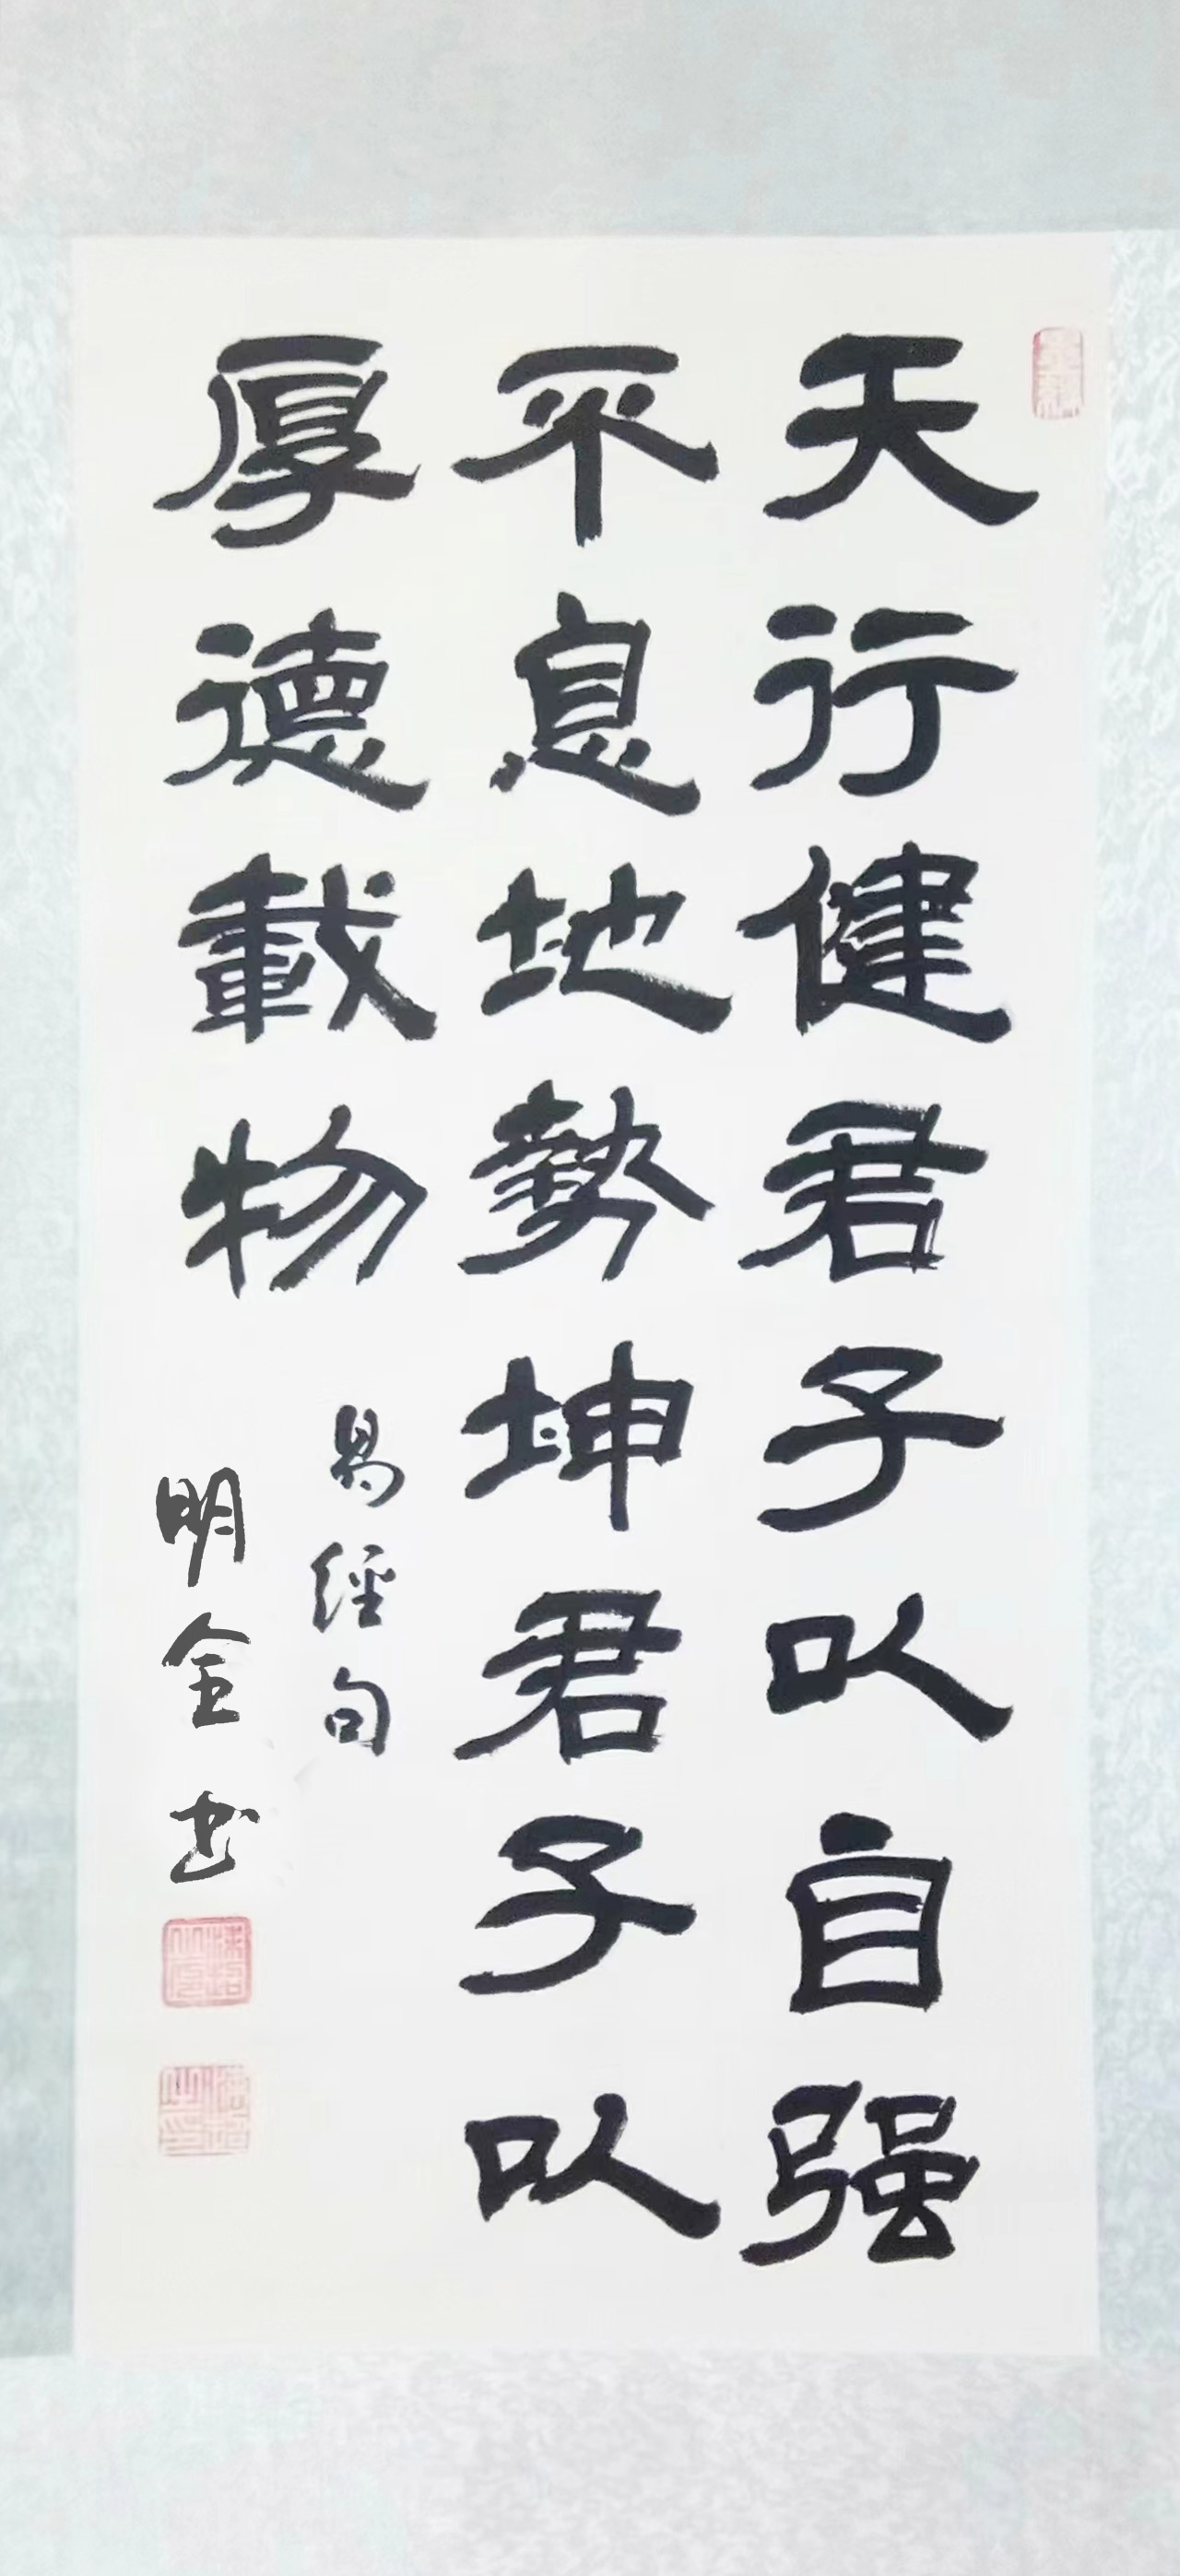 天行健君子以自强
不息地勢坤君子以
厚德載物
易經句
明全书